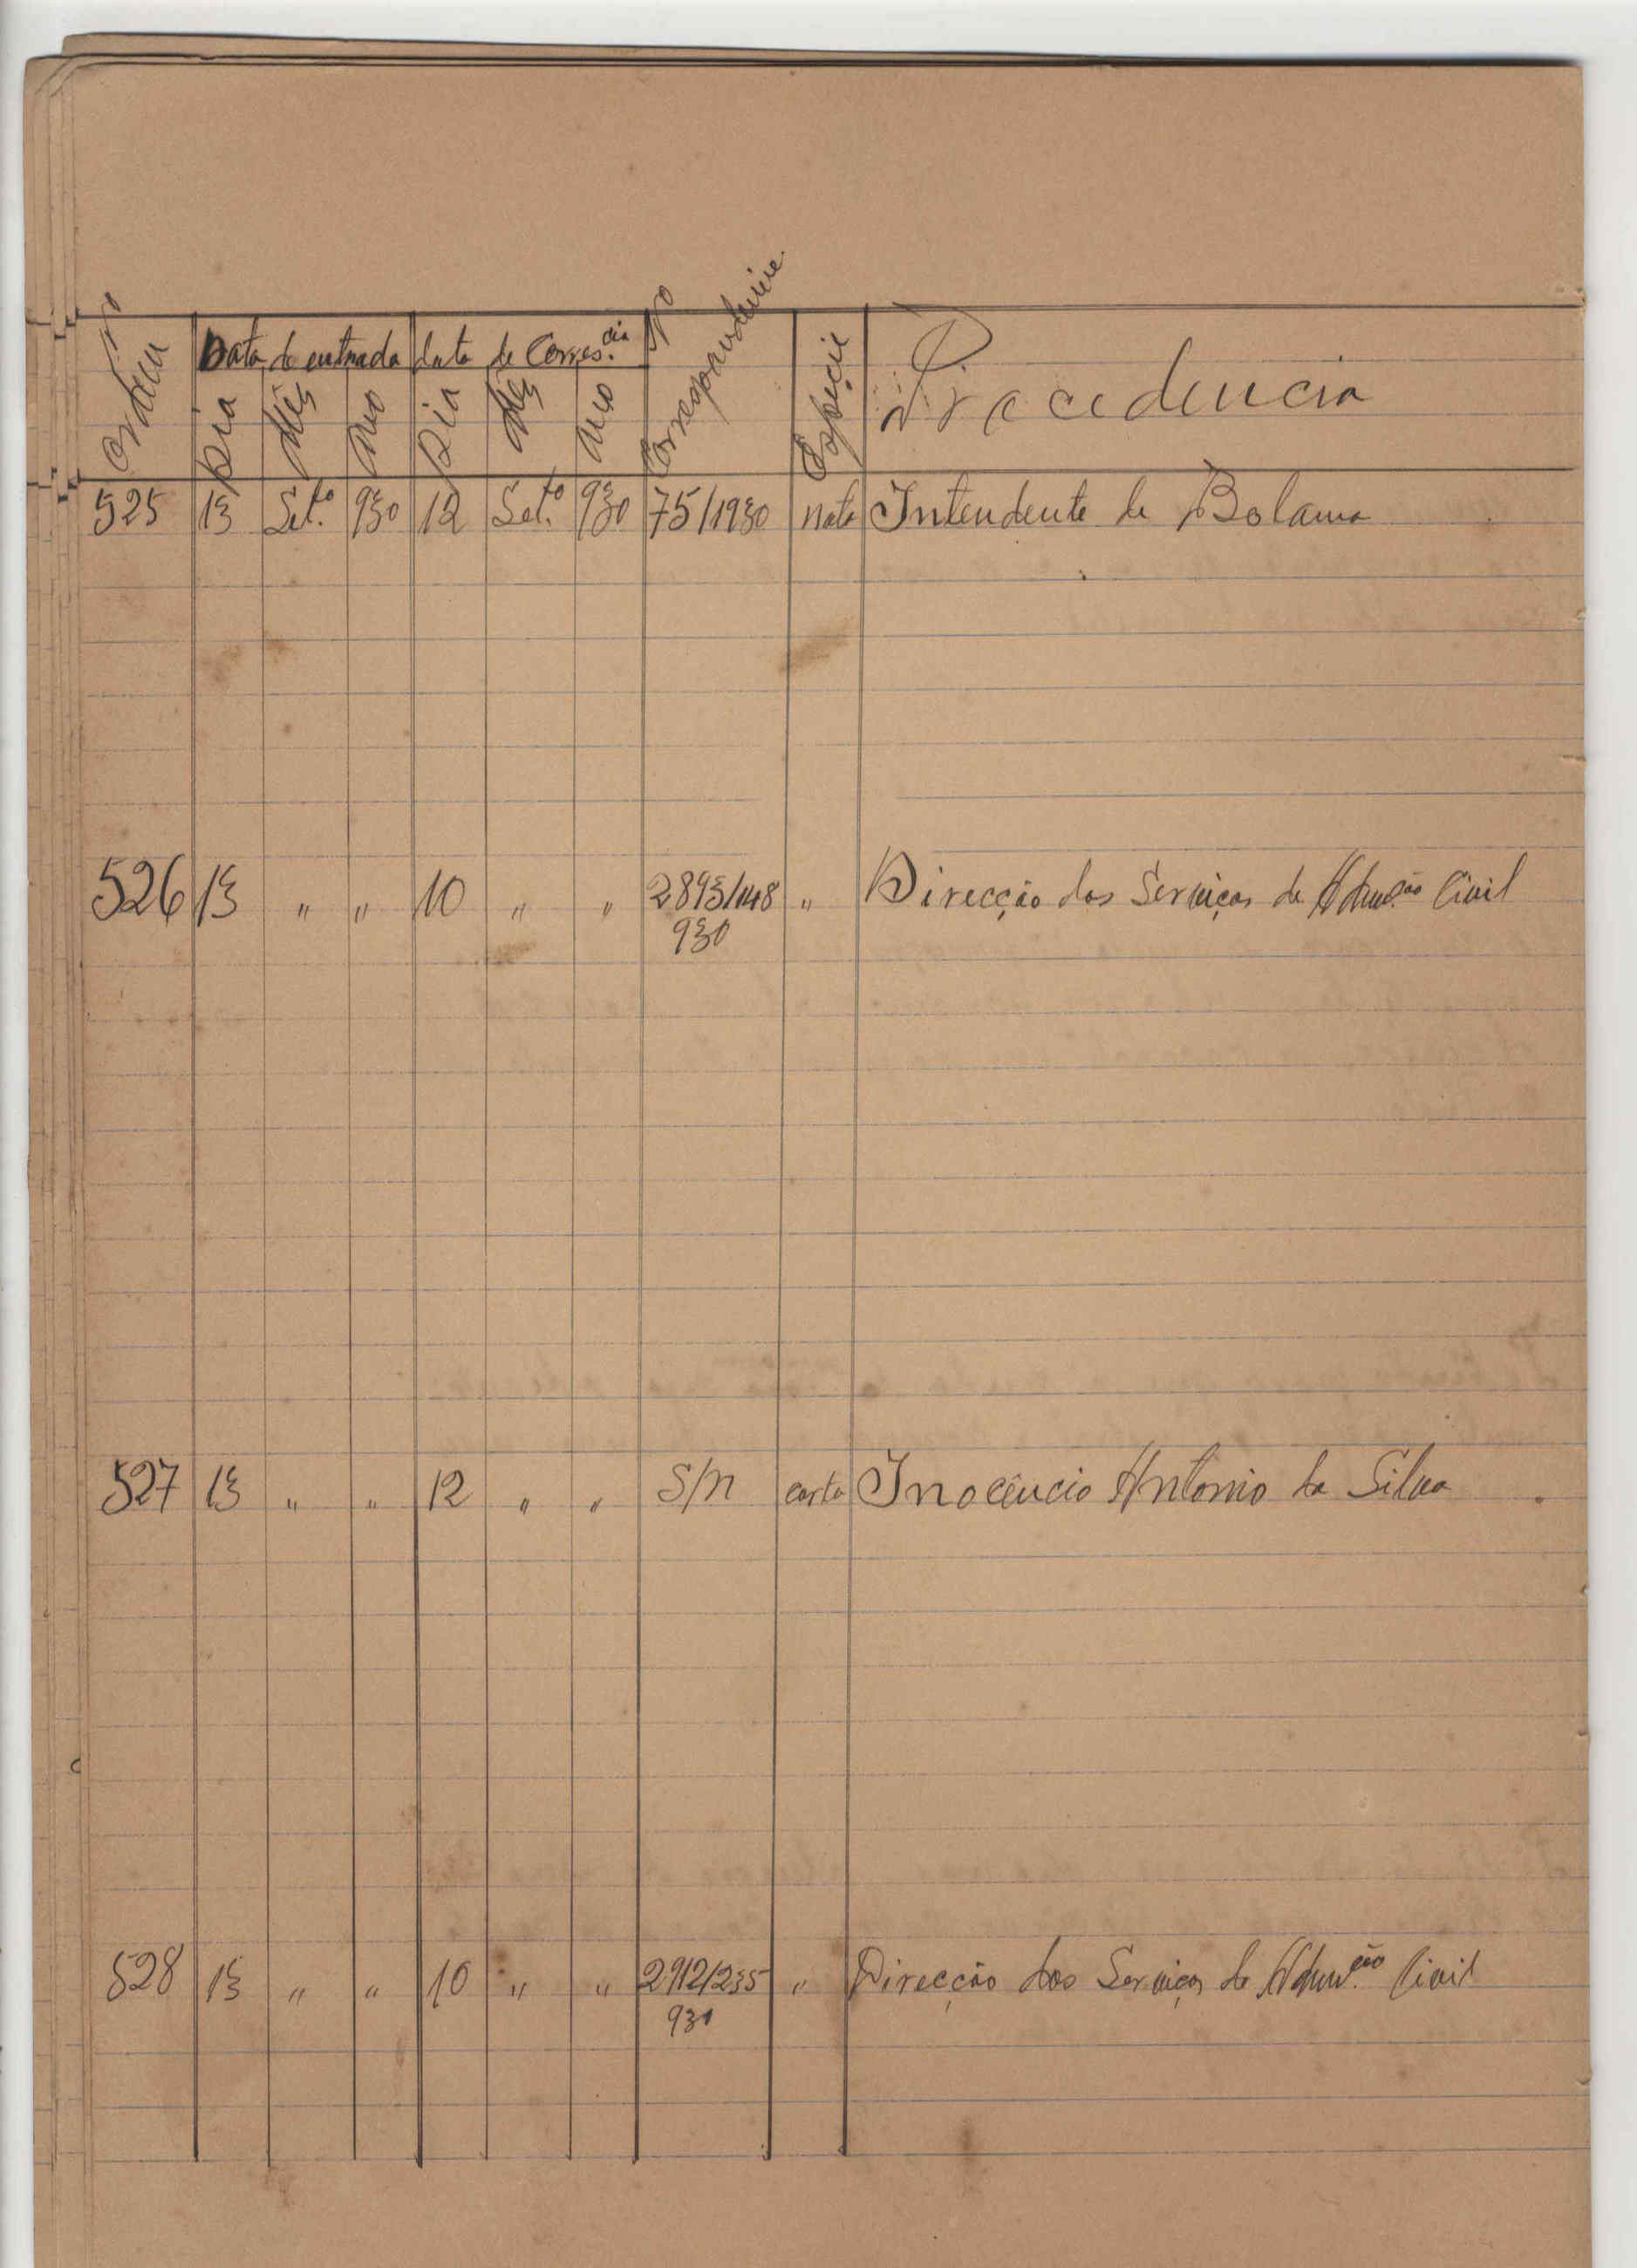 Nº Ordem Data de entrada data de Corres.cia Nº Correspondencia Especie Procedencia
Dia Mês Ano Dia Mês Ano
525 13 Set.to 930 12 Set.to 930 75/1930 nota Intendente de Bolama
526 13 " " 10 " " 2893/148 " Direcção dos Serviços de Admn.ção Civil
930
527 13 " " 12 " " S/n carta Inocêncio Antonio da Silva
528 13 " " 10 " " 2912/235 " Direcção dos Serviços de Admn.ção Civil
930